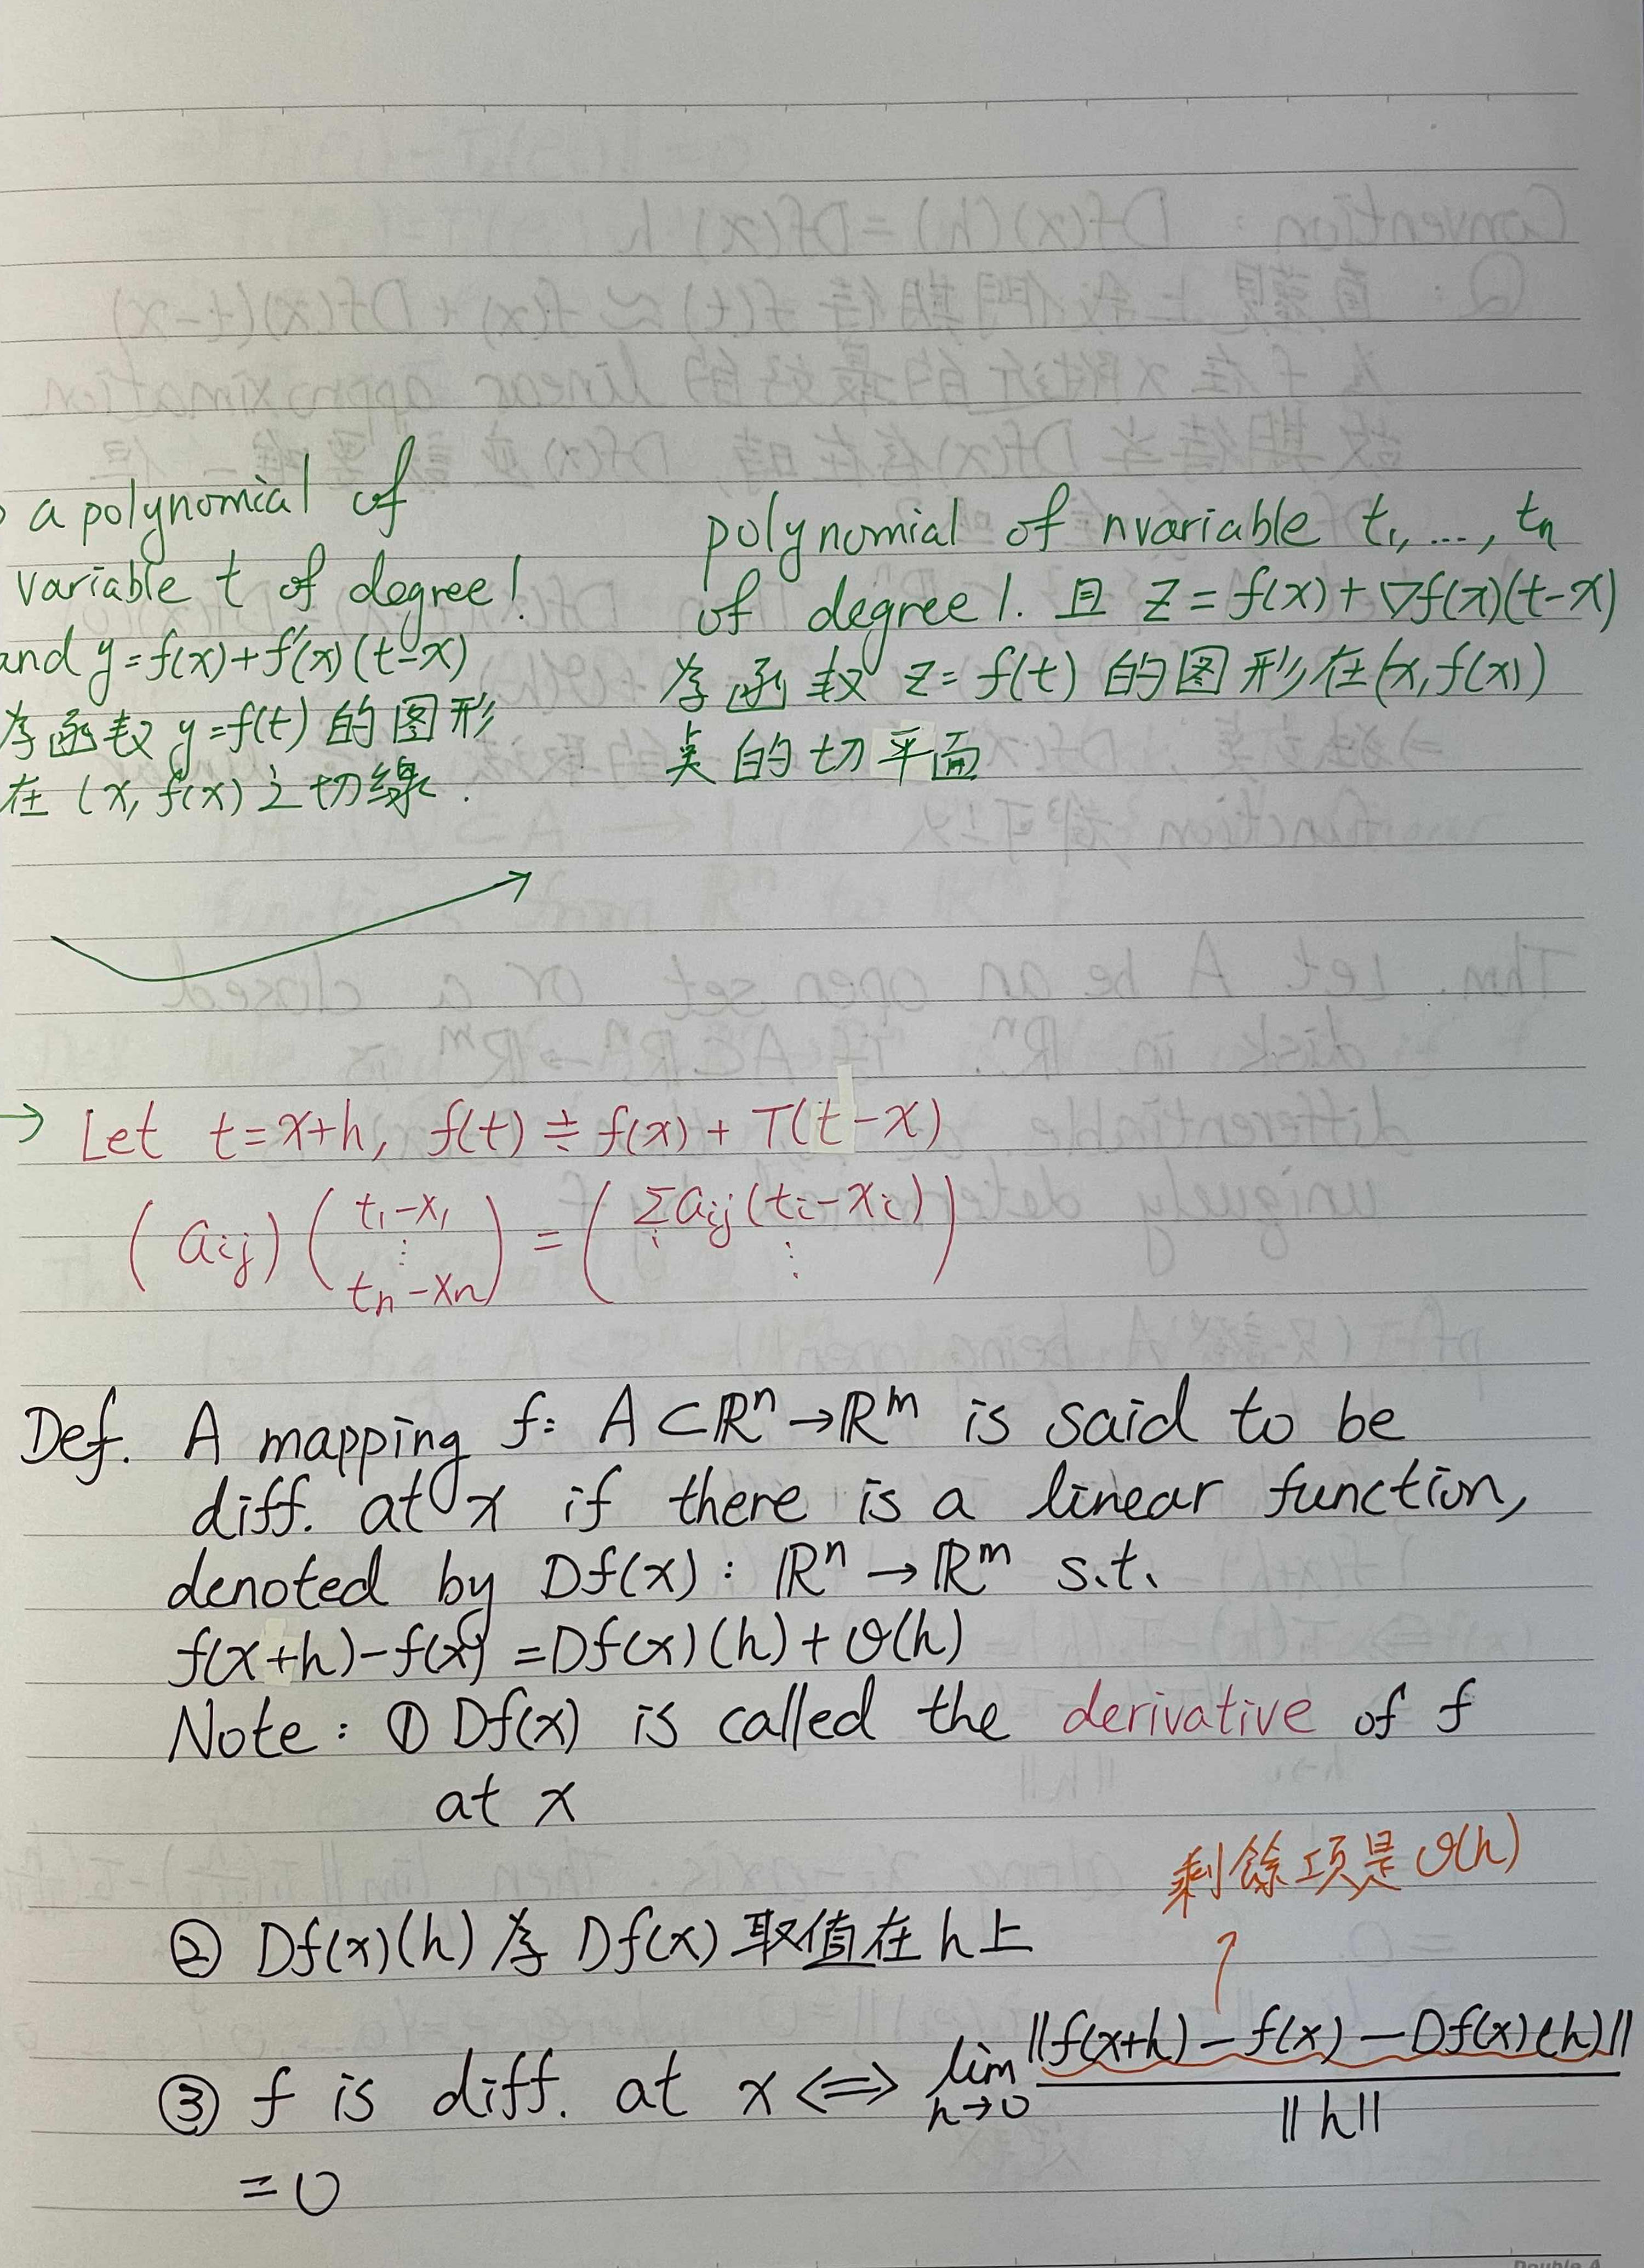 a polynomial of
variable t of degree 1
and y=f(x)+f'(x)(t-x)
為函數 y=f(t) 的图形
在 (x, f(x) 之切線.
polynomial of n variable t₁, ..., tₙ
of degree 1. 且 z=f(x)+∇f(x)(t-x)
為函數 z=f(t) 的图形在(x,f(x))
点的切平面
→ Let t=x+h, f(t)≑f(x)+T(t-x)
(aᵢⱼ)(t₁-x₁ ⋮ tₙ-xₙ)=(Σᵢ aᵢⱼ(tᵢ-xᵢ) ⋮)
Def. A mapping f: A⊂ℝⁿ→ℝᵐ is said to be
diff. at x if there is a linear function,
denoted by Df(x): ℝⁿ→ℝᵐ s.t.
f(x+h)-f(x)=Df(x)(h)+o(h)
Note: ① Df(x) is called the derivative of f
at x
剩餘項是 o(h)
② Df(x)(h) 為 Df(x) 取值在 h 上
③ f is diff. at x ⟺ lim h→0 ||f(x+h)-f(x)-Df(x)(h)|| / ||h||
=0
Double A